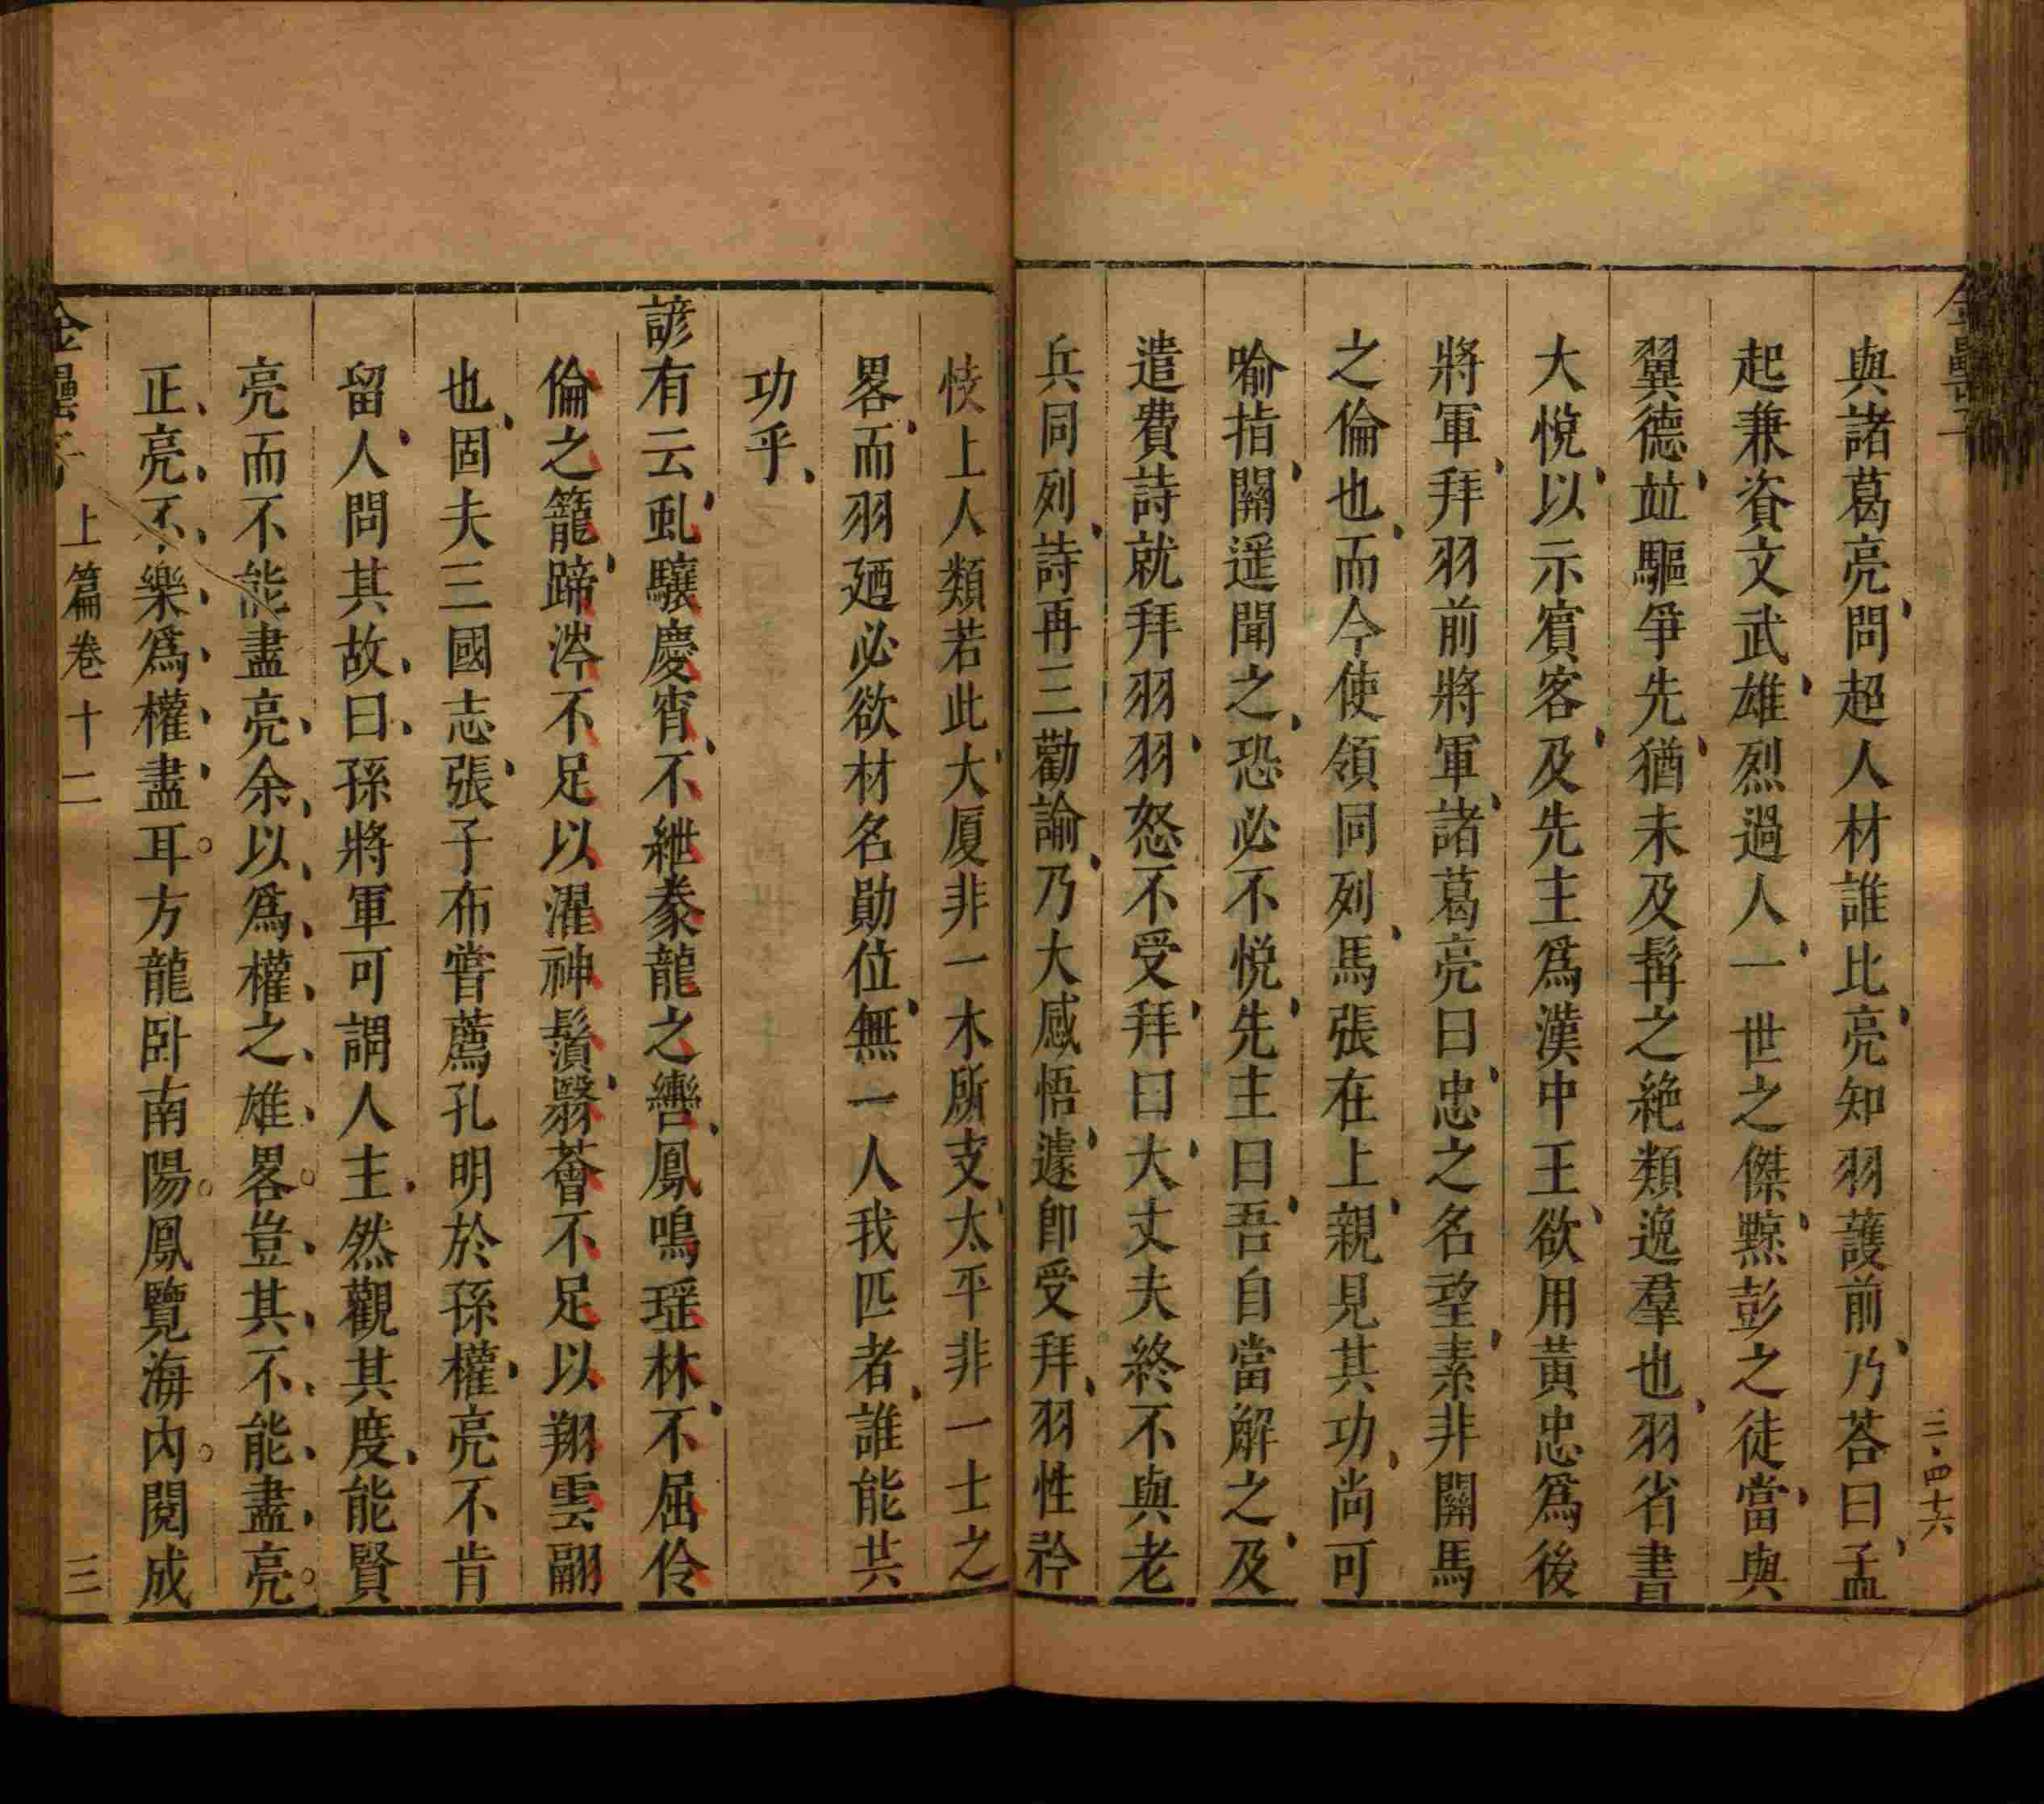 與諸葛亮問超人材誰比亮知羽護前乃荅曰孟
起兼資文武雄烈過人一世之傑黥彭之徒當與
翼德並驅爭先猶未及髯之絶類逸羣也羽省書
大悅以示賓客及先主爲漢中王欲用黃忠爲後
將軍拜羽前將軍諸葛亮曰忠之名望素非關馬
之倫也而今使領同列馬張在上親見其功尚可
喻指關遥聞之恐必不悅先主曰吾自當解之及
遣費詩就拜羽羽怒不受拜曰大丈夫終不與老
兵同列詩再三勸諭乃大感悟遽卽受拜羽性矜
上人類若此大厦非一木所支太平非一士之
畧而羽廼必欲材名勛位無一人我匹者誰能共
功乎
諺有云虬驤慶宵不紲豢龍之轡鳳鳴瑶林不屈伶
倫之籠蹄涔不足以濯神鬚翳薈不足以翔雲翮
也固夫三國志張子布嘗薦孔明於孫權亮不肯
留人問其故曰孫將軍可謂人主然觀其度能賢
亮而不能盡亮余以爲權之雄畧豈其不能盡亮
正亮不樂爲權盡耳方龍臥南陽鳳覽海內閱成
金罍子 上篇卷十二 三
三·四十六